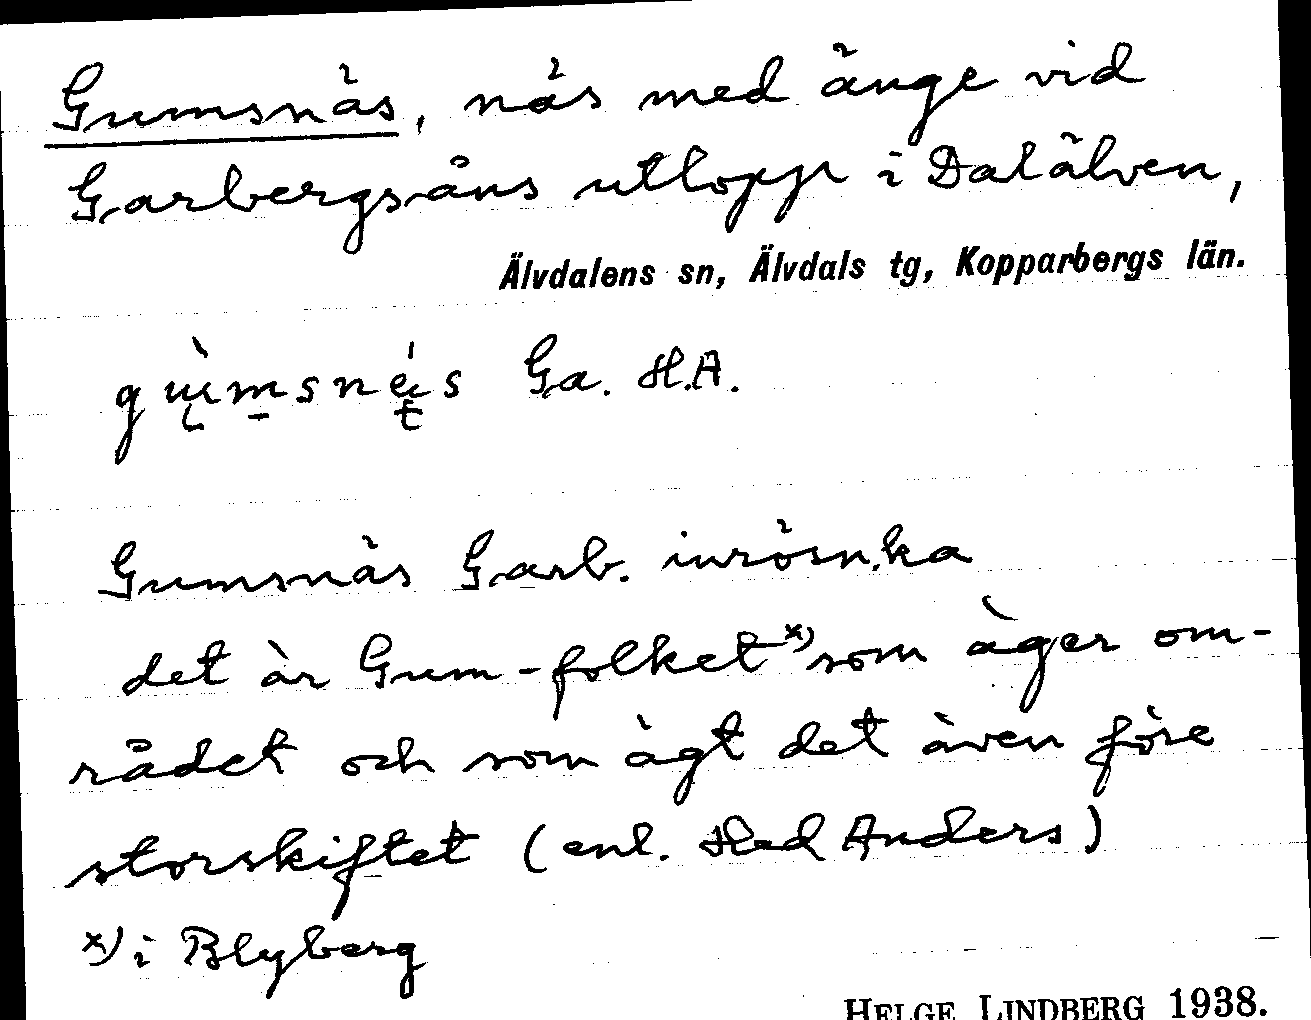 Gumsnäs, näs med änge vid
Garbergsåns utlopp i Dalälven,
Älvdalens sn, Älvdals tg, Kopparbergs län.
Ga. H.A.
Gumsnäs Garb. inrösn.ka
det är Gum-folket x) som äger om-
rådet och som ägt det även före
storskiftet (enl. Hed Anders)
x) i Blyberg
HELGE LINDBERG 1938.